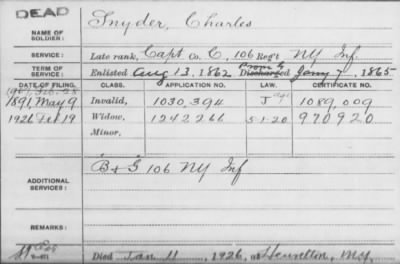 DEAD
Snyder, Charles
NAME OF SOLDIER:
SERVICE: Late rank, Capt Co. C, 106 Reg't NY Inf.
TERM OF SERVICE: Enlisted Aug 13, 1862 Discharged Jany 7, 1865
DATE OF FILING. CLASS. APPLICATION NO. LAW. CERTIFICATE NO.
1891, May 9 Invalid, 1030,394 J 1089,009
1926 19 Widow, 1242266 5-1-20 970920
Minor.
ADDITIONAL SERVICES:
B + G 106 NY Inf
REMARKS:
Died Jan 11, 1926, at Heuvelton, N.Y.